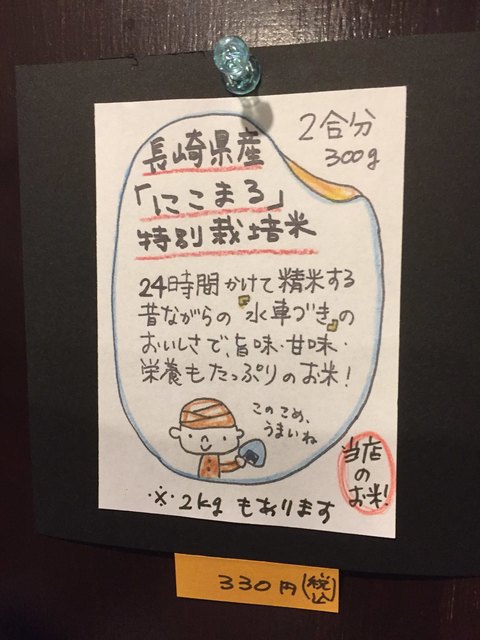 2合分
300g
長崎県産
「にこまる」
特別栽培米
24時間かけて精米する
昔ながらの『水車づき』の
おいしさで、旨味・甘味・
栄養もたっぷりのお米!
このこめ、
うまいね
当店
の
お米!
※2kgもあります
330円(税込)